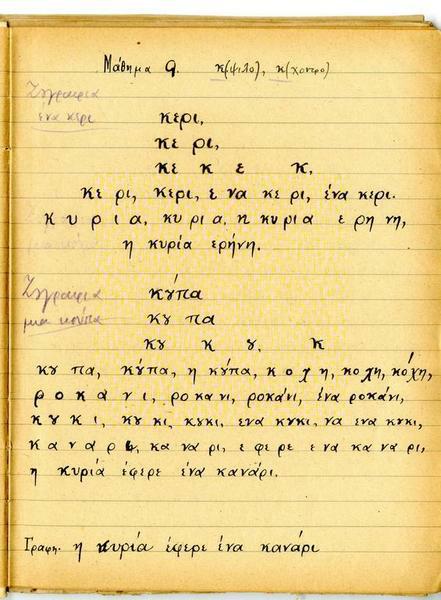 Μάθημα 9. κ(ψιλό), κ(χοντρο)
Ζωγραφια
ενα κερι
κερι,
κε ρι,
κε κ ε κ,
κε ρι, κερι, ε να κε ρι, ένα κερι.
κ υ ρ ι α, κυ ρι α, η κυρια ε ρη νη,
η κυρία ερήνη.
Ζωγραφια
μια κούπα
κȣ́πα
κȣ πα
κȣ κ ȣ, κ
κȣ πα, κȣ́πα, η κȣ́πα, κ ο χ η, κο χη, κό χη,
ρ ο κ α ν ι, ρο κα νι, ροκάνι, ένα ροκάνι,
κ ȣ κ ι, κȣ κι, κȣκι, ενα κȣκι, να ενα κȣκι,
κ α ν α ρ ι, κα να ρι, ε φε ρε ε να κα να ρι,
η κυρία έφερε ένα κανάρι.
Γραφη. η κυρία έφερε ένα κανάρι